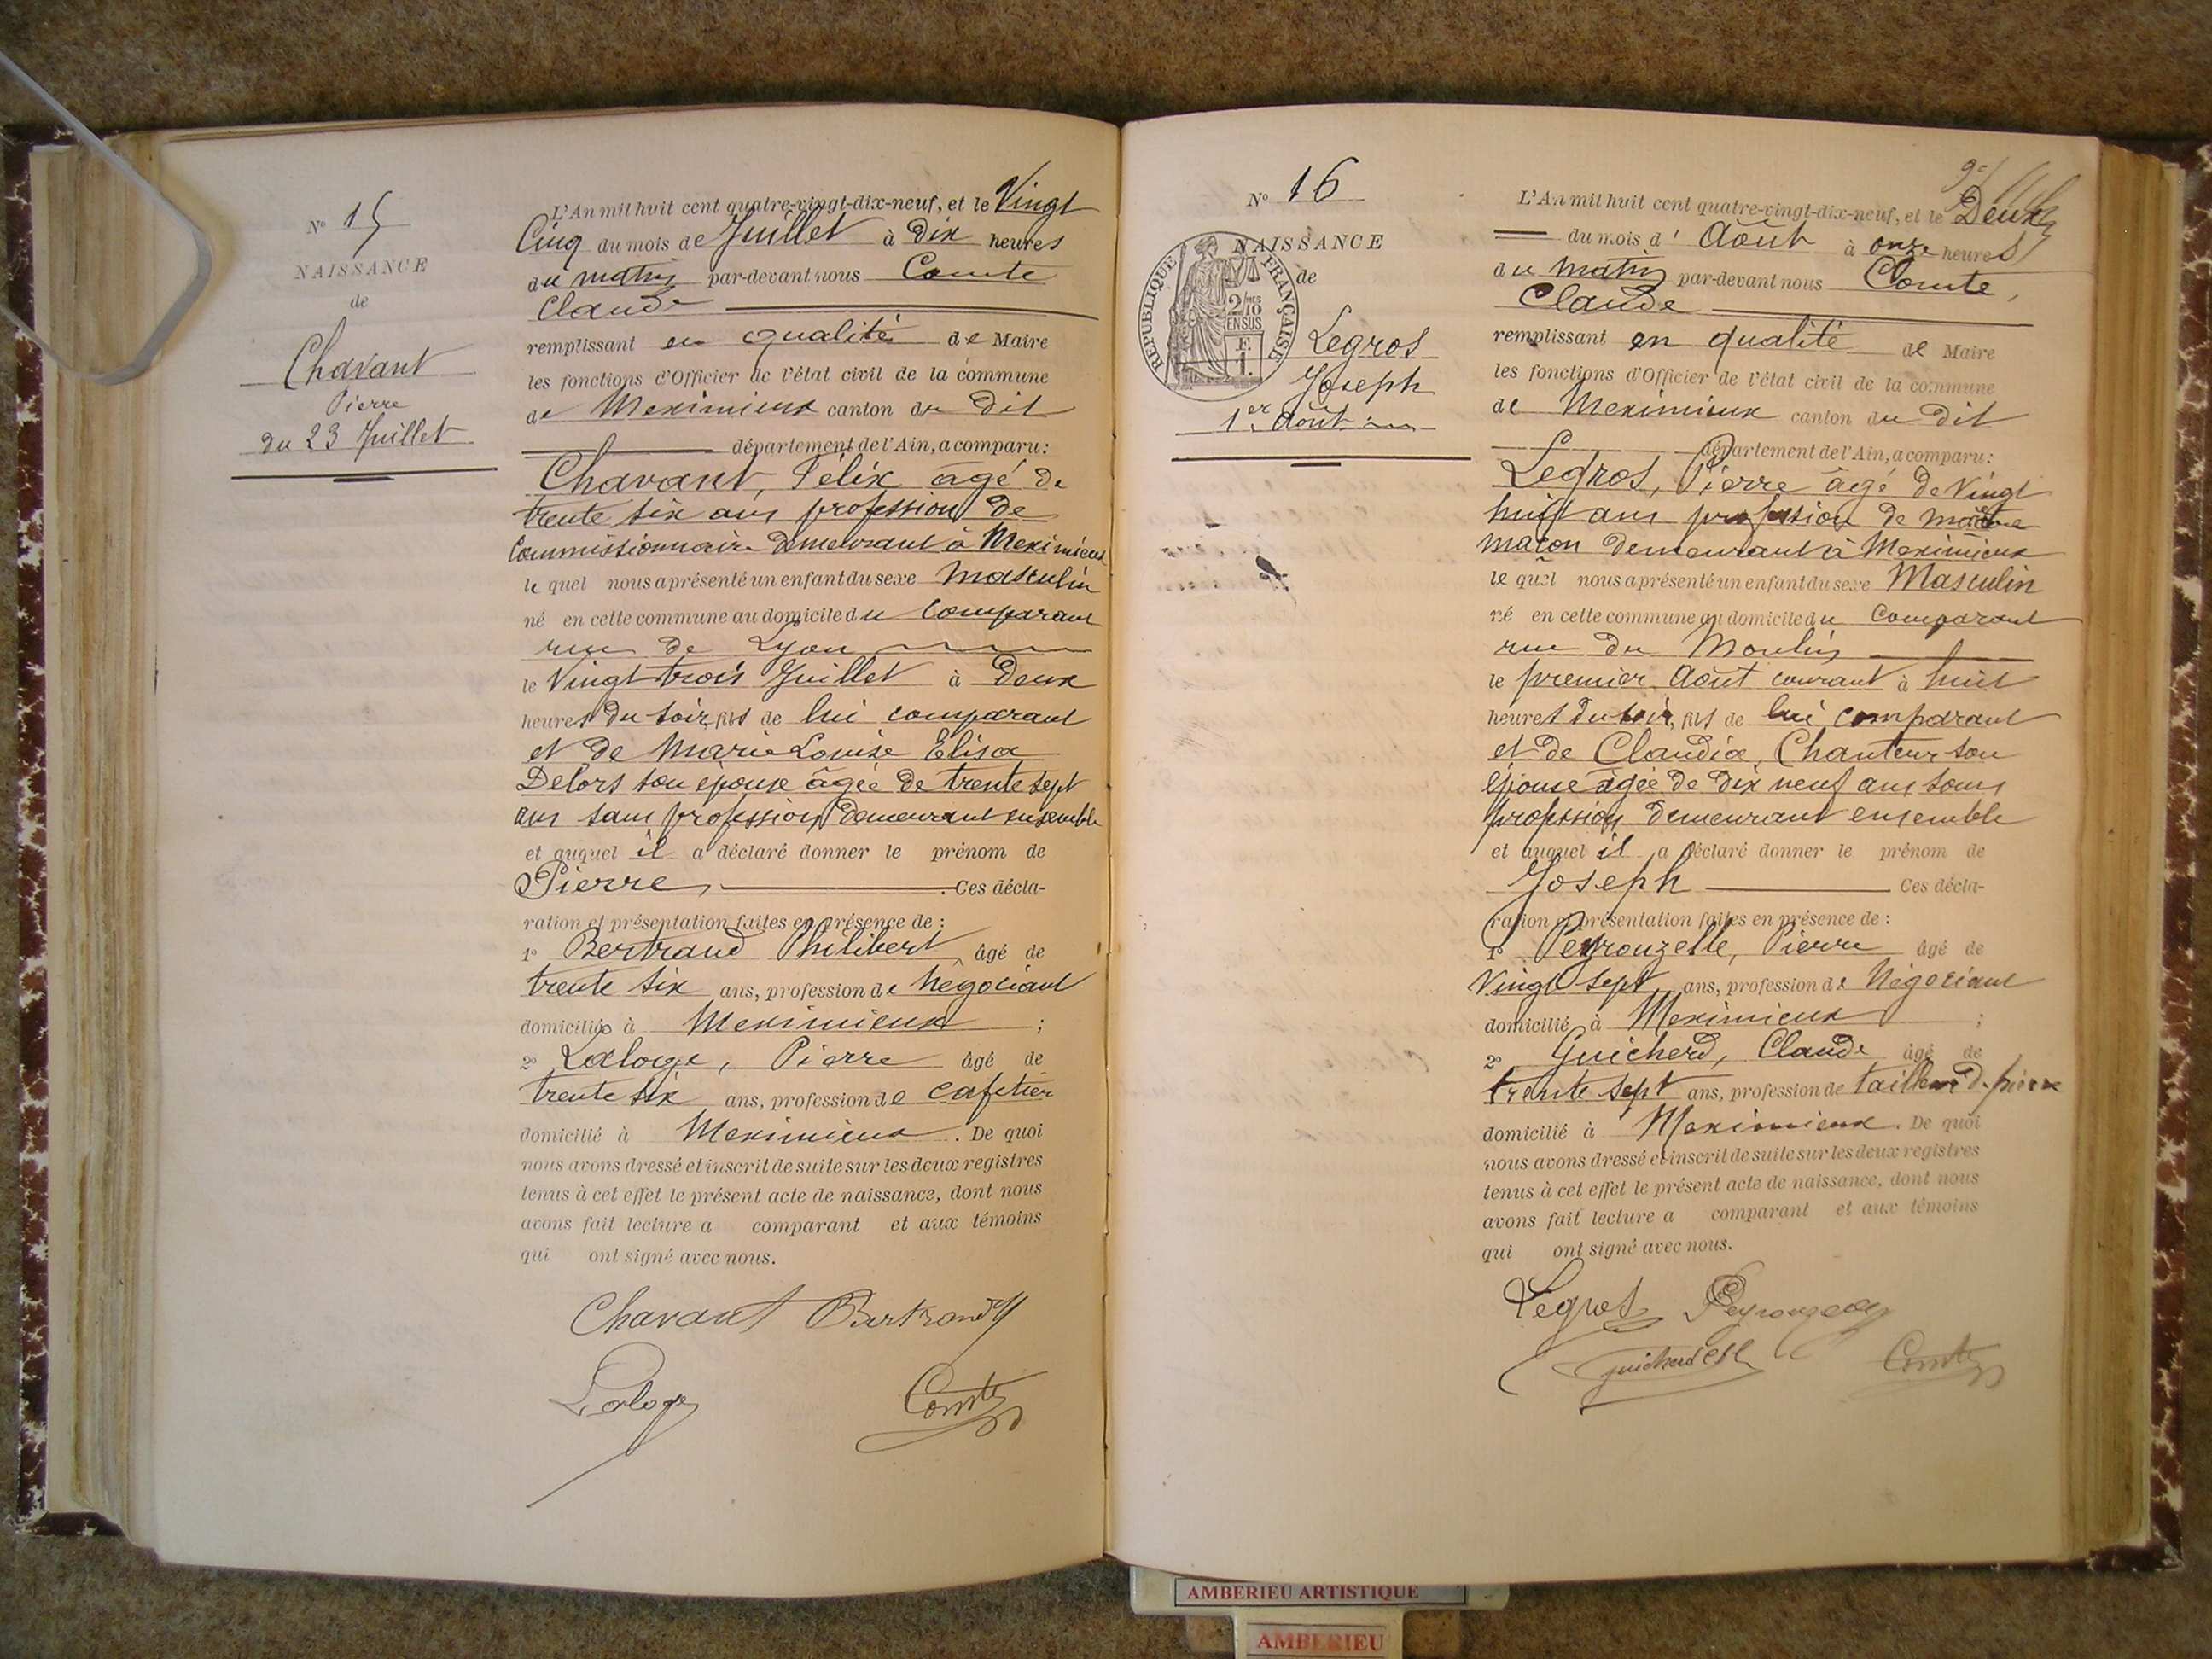 N° 15
NAISSANCE
de
Chavant
Pierre
du 23 Juillet
L'An mil huit cent quatre-vingt-dix-neuf, et le Vingt
Cinq du mois de Juillet à Dix heures
du matin par-devant nous Comte
Claude
remplissant en qualité de Maire
les fonctions d'Officier de l'état civil de la commune
de Meximieux canton du dit
département de l'Ain, a comparu:
Chavant, Félix âgé de
trente six ans profession de
Commissionnaire demeurant à Meximieux
le quel nous a présenté un enfant du sexe masculin
né en cette commune au domicile du comparant
rue de Lyon
le Vingt trois Juillet à Deux
heures du soir, fils de lui comparant
et de Marie Louise Elisa
Delors son épouse âgée de trente sept
ans sans profession demeurant ensemble
et auquel il a déclaré donner le prénom de
Pierre, Ces décla-
ration et présentation faites en présence de :
1° Bertrand Philibert, âgé de
trente six ans, profession de négociant
domicilié à Meximieux ;
2° Laloge, Pierre âgé de
trente six ans, profession de cafetier
domicilié à Meximieux. De quoi
nous avons dressé et inscrit de suite sur les deux registres
tenus à cet effet le présent acte de naissance, dont nous
avons fait lecture a comparant et aux témoins
qui ont signé avec nous.
Chavant Bertrand
Laloge Comte
N° 16
NAISSANCE
de
RÉPUBLIQUE FRANÇAISE
2/10
EN SUS
F.
1.
Legros
Joseph
1er Août
L'An mil huit cent quatre-vingt-dix-neuf, et le Deux
du mois d' Août à onze heures
du matin par-devant nous Comte,
Claude
remplissant en qualité de Maire
les fonctions d'Officier de l'état civil de la commune
de Meximieux canton du dit
département de l'Ain, a comparu:
Legros, Pierre âgé de Vingt
huit ans profession de maître
maçon demeurant à Meximieux
le quel nous a présenté un enfant du sexe Masculin
né en cette commune au domicile du comparant
rue du Moulin
le premier Août courant à huit
heures du soir, fils de lui comparant
et de Claudia, Chanteur son
épouse âgée de dix neuf ans sans
profession demeurant ensemble
et auquel il a déclaré donner le prénom de
Joseph Ces décla-
ration et présentation faites en présence de :
1° Peyrouzelle, Pierre âgé de
Vingt sept ans, profession de Négociant
domicilié à Meximieux ;
2° Guicherd, Claude âgé de
trente sept ans, profession de tailleur de pierre
domicilié à Meximieux. De quoi
nous avons dressé et inscrit de suite sur les deux registres
tenus à cet effet le présent acte de naissance, dont nous
avons fait lecture a comparant et aux témoins
qui ont signé avec nous.
Legros Peyrouzelle
Guicherd Comte
AMBERIEU ARTISTIQUE
AMBERIEU